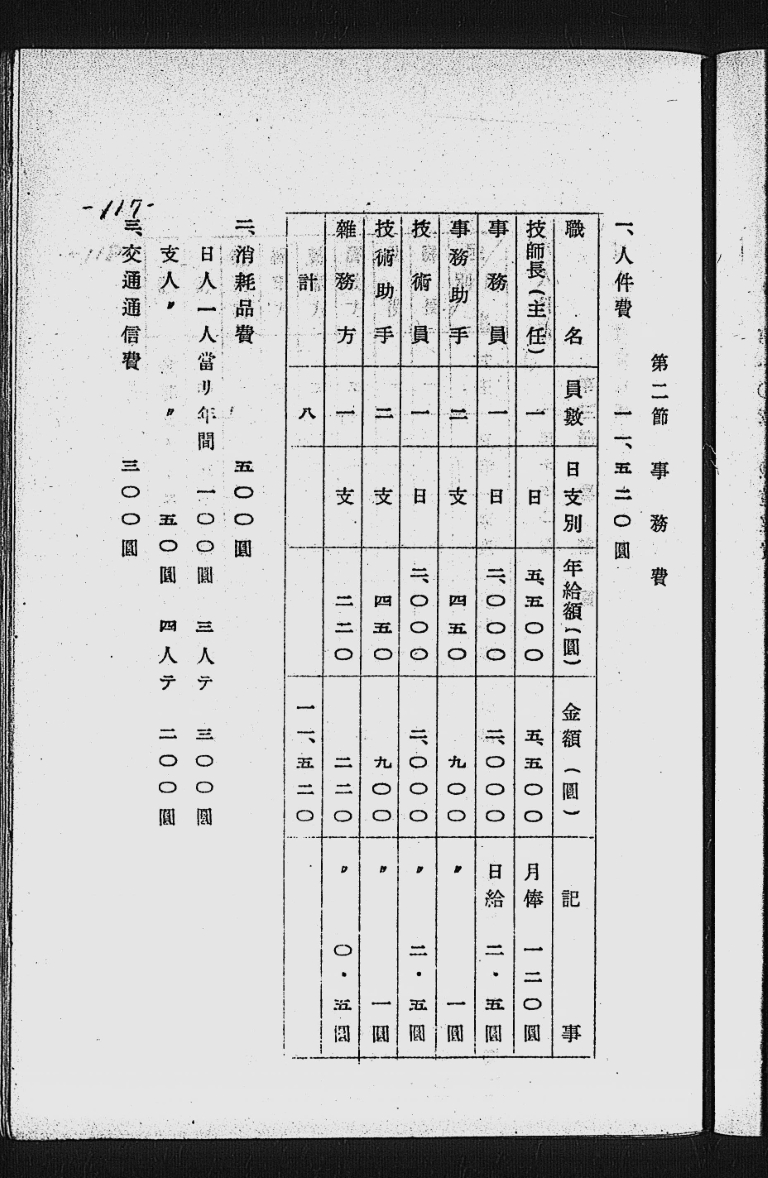 第二節 事務費
一、人件費 一一、五二〇圓
職名 員數 日支別 年給額(圓) 金額(圓) 記事
技師長(主任) 一 日 五、五〇〇 五、五〇〇 月俸 一二〇圓
事務員 一 日 二、〇〇〇 二、〇〇〇 日給 二・五圓
事務助手 二 支 四五〇 九〇〇 〃 一圓
技術員 一 日 二、〇〇〇 二、〇〇〇 〃 二・五圓
技術助手 二 支 四五〇 九〇〇 〃 一圓
雜務方 一 支 二二〇 二二〇 〃 〇・五圓
計 八 一一、五二〇
二、消耗品費 五〇〇圓
日人一人當リ年間 一〇〇圓 三人テ 三〇〇圓
支人〃 〃 五〇圓 四人テ 二〇〇圓
三、交通通信費 三〇〇圓
-117-